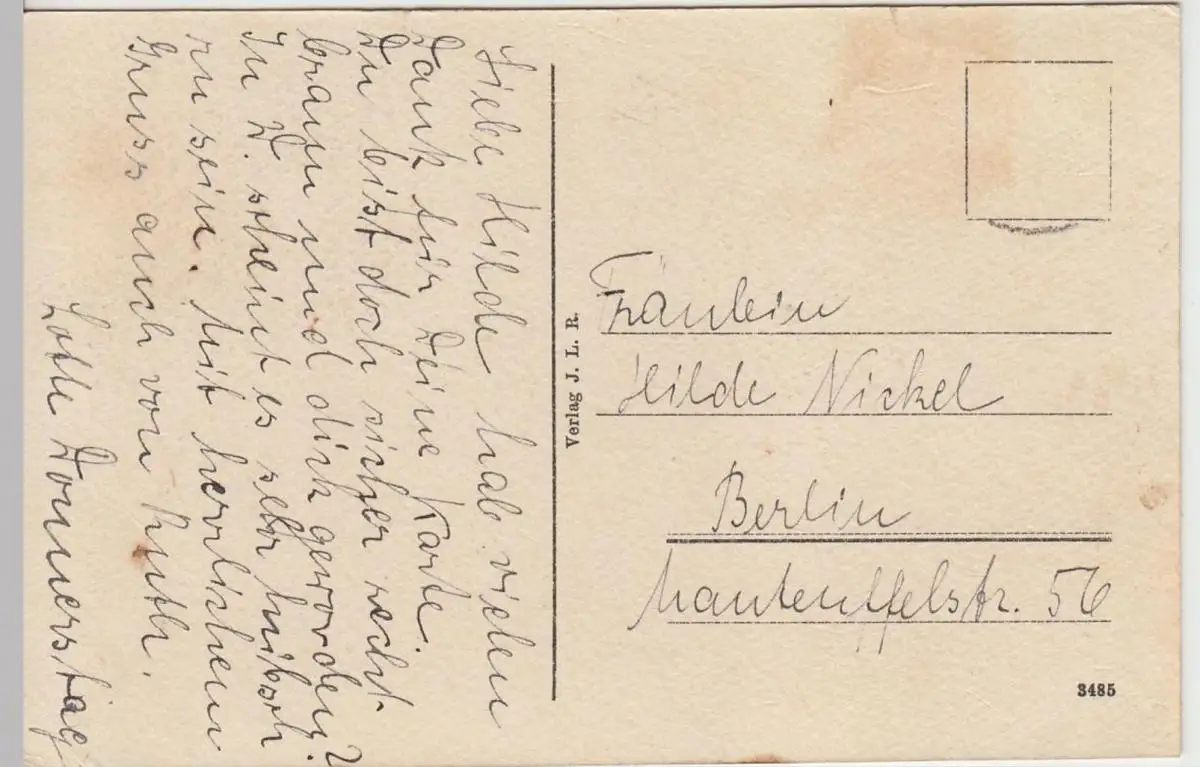 Liebe Hilde hab vielen
Dank für Deine Karte.
Du bist doch sicher recht
braun und dick geworden?
In D. scheint es sehr hübsch
zu sein. Mit herzlichem
Gruss auch von Ruth.
Lotte Donnerstag
Verlag J. L. R.
Fräulein
Hilde Nickel
Berlin
Manteuffelstr. 56
3485